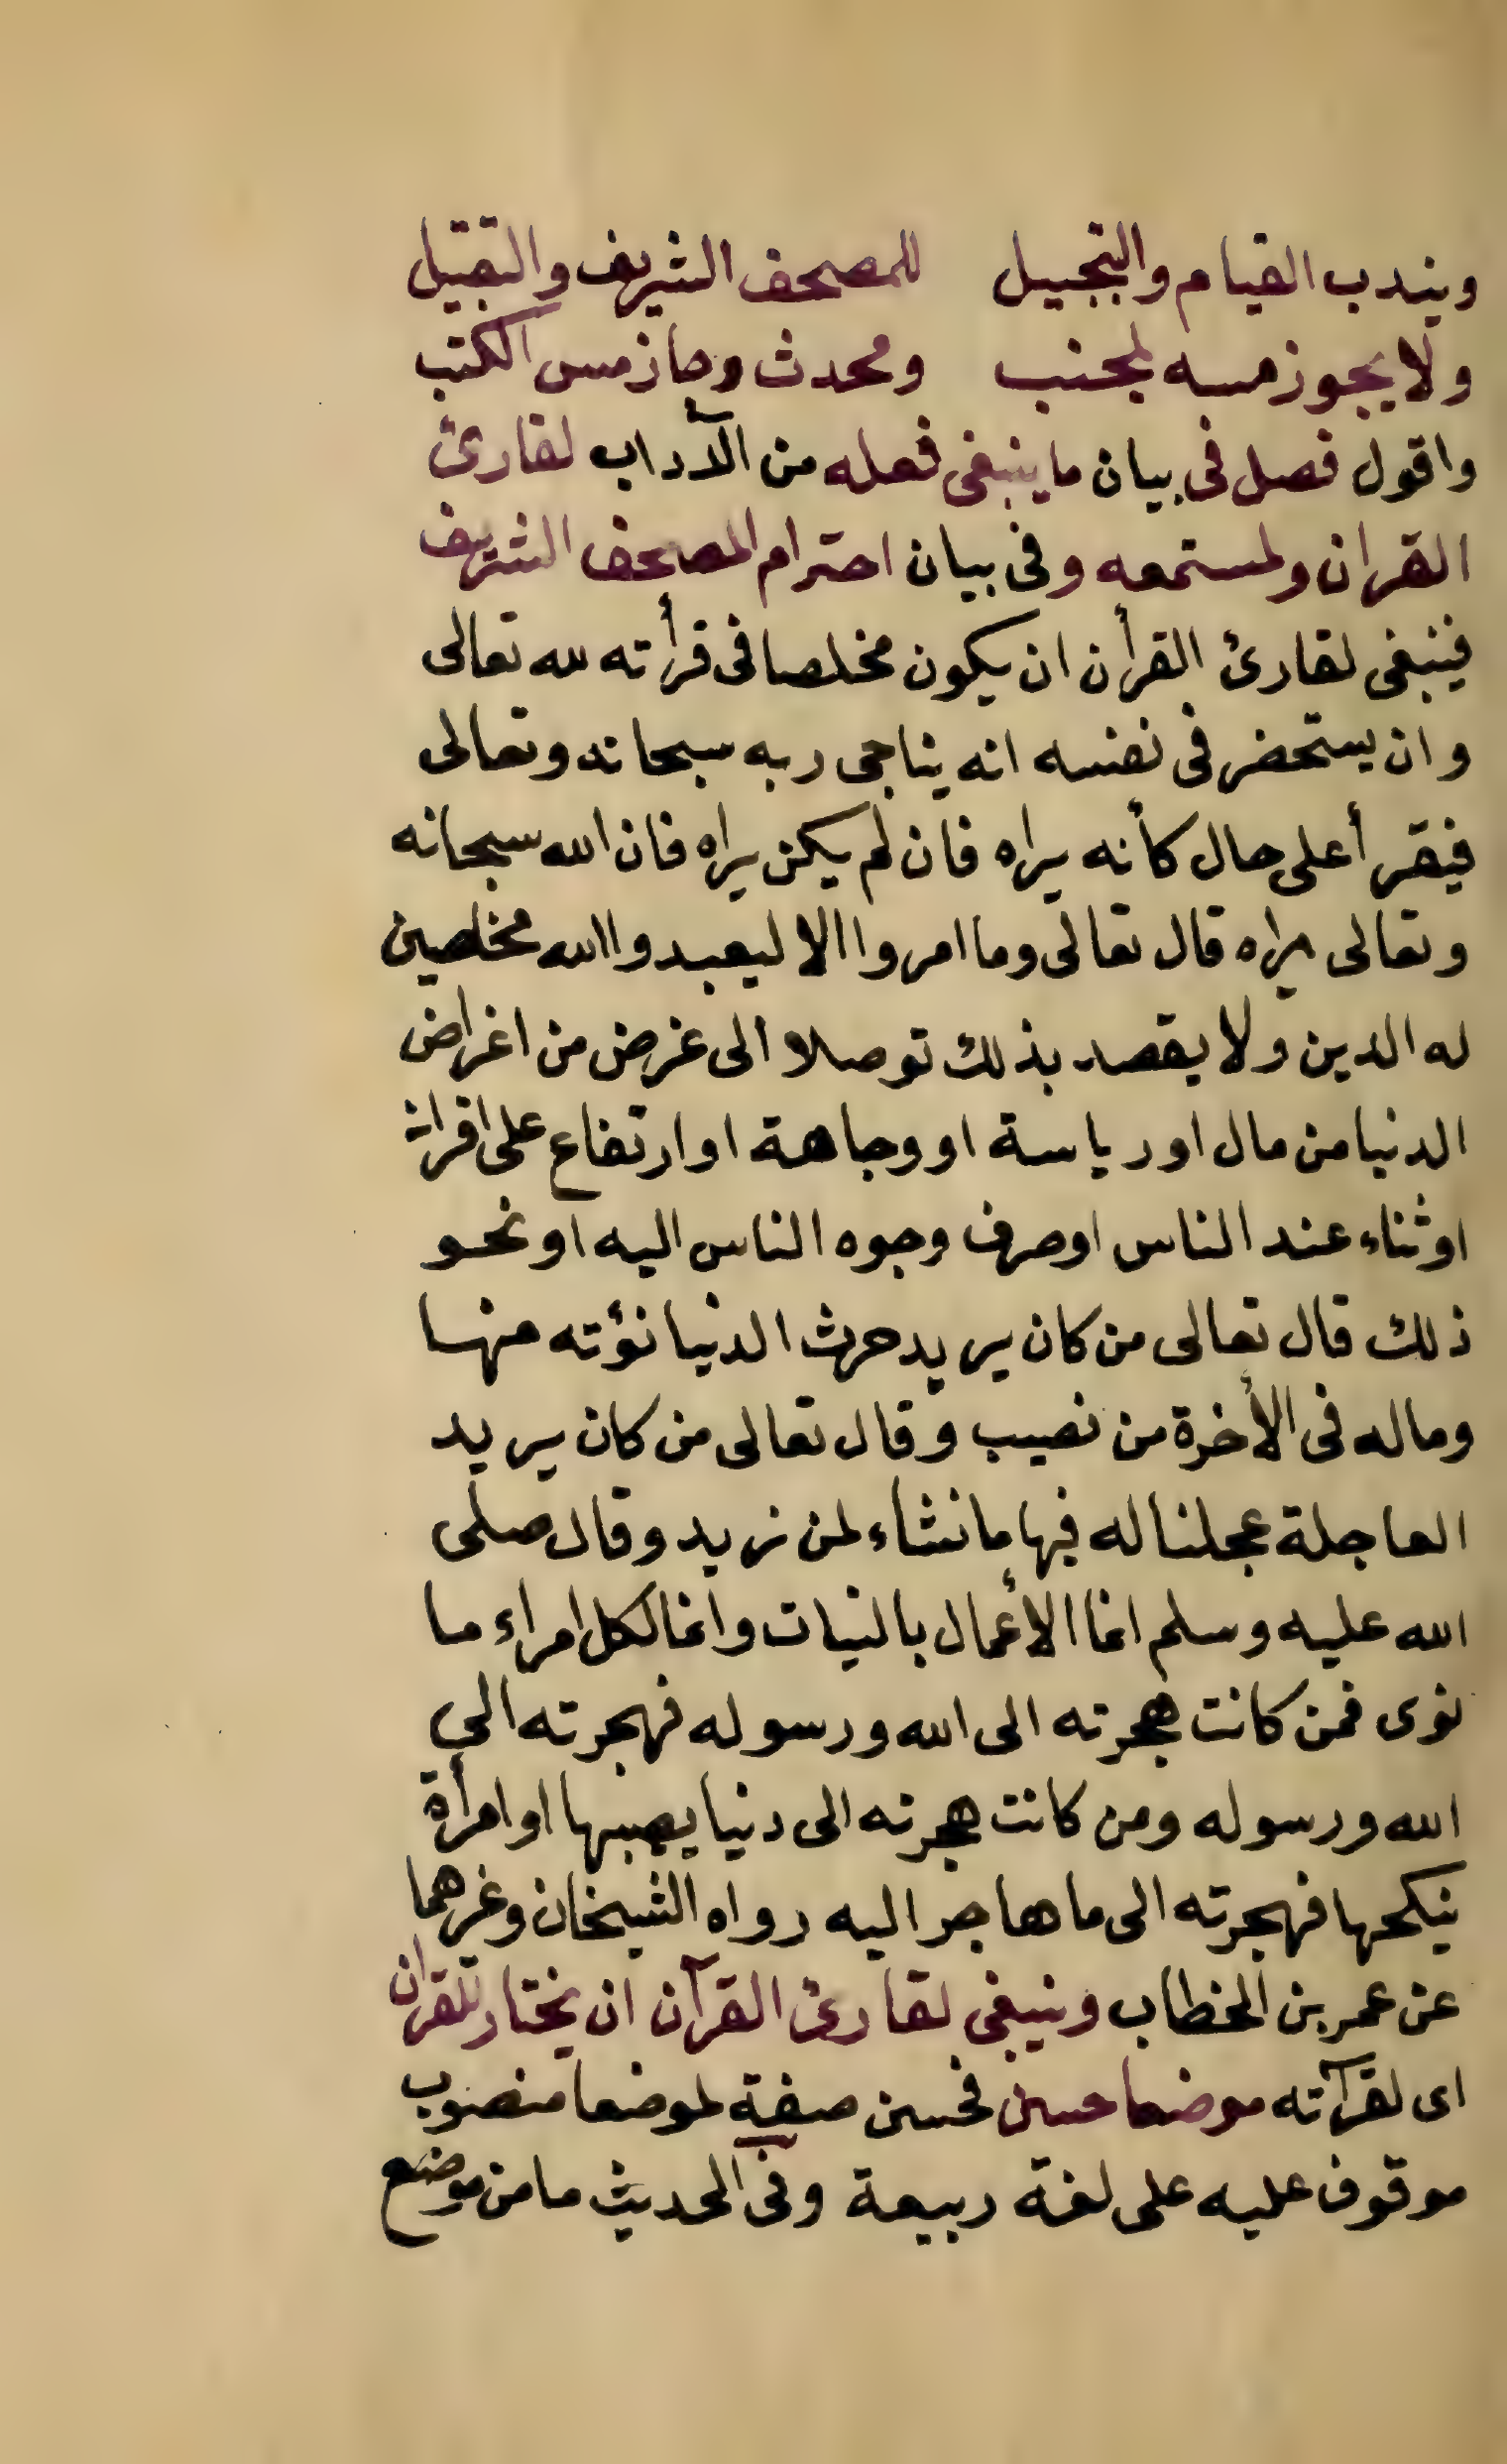 ويندب القيام والتبجيل للمصحف الشريف والتقبيل
ولا يجوز مسه لمجنب ومحدث وجاز مس الكتب
واقول فصل فى بيان ما ينبغى فعله من الآداب لقارئ
القران ولمستمعه وفى بيان احترام المصحف الشريف
فينبغى لقارئ القرأن ان يكون مخلصا فى قرأته لله تعالى
وان يستحضر فى نفسه انه يناجى ربه سبحانه وتعالى
فيقرأ على حال كأنه يراه فان لم يكن يراه فان الله سبحانه
وتعالى يراه قال تعالى وما امروا الا ليعبدوا الله مخلصين
له الدين ولا يقصد بذلك توصلا الى غرض من اغراض
الدنيا من مال او رياسة او وجاهة او ارتفاع على اقرانه
او ثناء عند الناس او صرف وجوه الناس اليه او نحو
ذلك قال تعالى من كان يريد حرث الدنيا نؤته منها
وماله فى الأخرة من نصيب وقال تعالى من كان يريد
العاجلة عجلنا له فيها ما نشاء لمن نريد وقال صلى
الله عليه وسلم انما الأعمال بالنيات وانما لكل امراء ما
نوى فمن كانت هجرته الى الله ورسوله فهجرته الي
الله ورسوله ومن كانت هجرته الى دنيا يصيبها او امرأة
ينكحها فهجرته الى ما هاجر اليه رواه الشيخان وغيرهما
عن عمر بن الخطاب وينبغى لقارئ القرآن ان يختار للقران
اى لقرآته موضعا حسن فحسن صفة لموضعا منصوب
موقوف عليه على لغة ربيعة وفى الحديث ما من موضع